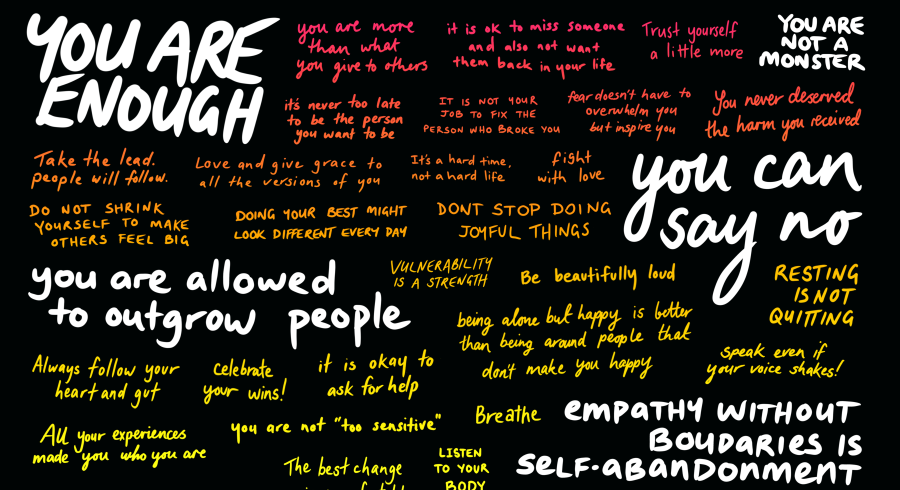 YOU ARE
ENOUGH
you are more
than what
you give to others
it is ok to miss someone
and also not want
them back in your life
Trust yourself
a little more
YOU ARE
NOT A
MONSTER
it's never too late
to be the person
you want to be
IT IS NOT YOUR
JOB TO FIX THE
PERSON WHO BROKE YOU
fear doesn't have to
overwhelm you
but inspire you
You never deserved
the harm you received
Take the lead.
people will follow.
Love and give grace to
all the versions of you
It's a hard time,
not a hard life
fight
with love
you can
say no
DO NOT SHRINK
YOURSELF TO MAKE
OTHERS FEEL BIG
DOING YOUR BEST MIGHT
LOOK DIFFERENT EVERY DAY
DONT STOP DOING
JOYFUL THINGS
you are allowed
to outgrow people
VULNERABILITY
IS A STRENGTH
Be beautifully loud
RESTING
IS NOT
QUITTING
being alone but happy is better
than being around people that
don't make you happy
Speak even if
your voice shakes!
Always follow your
heart and gut
Celebrate
your wins!
it is okay to
ask for help
All your experiences
made you who you are
you are not "too sensitive"
Breathe
EMPATHY WITHOUT
BOUDARIES IS
SELF-ABANDONMENT
The best change
LISTEN
TO YOUR
BODY